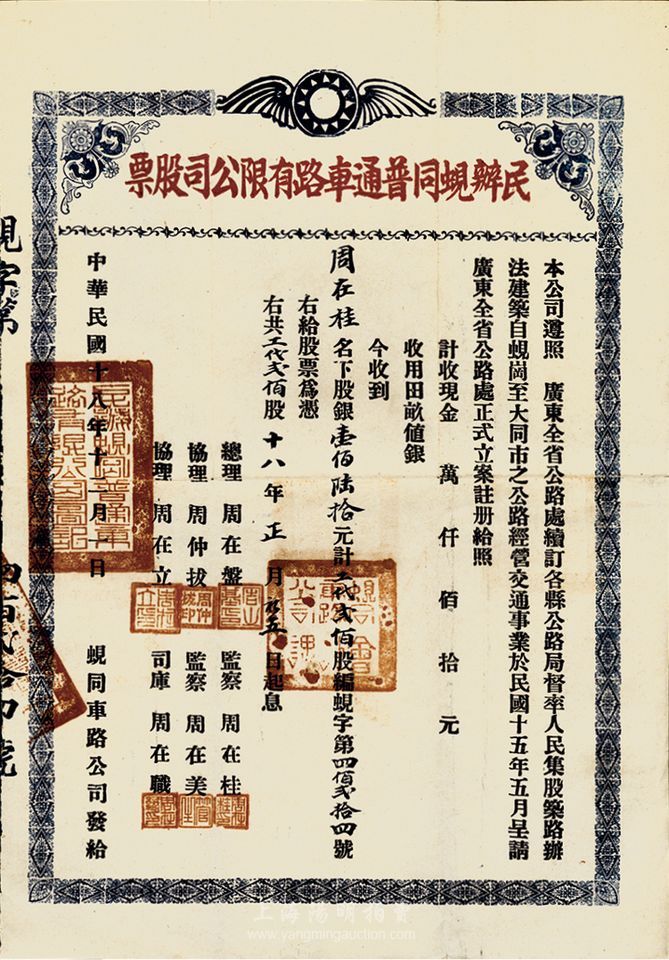 民辦蜆同普通車路有限公司股票
本公司遵照　廣東全省公路處續訂各縣公路局督率人民集股築路辦
法建築自蜆崗至大同市之公路經營交通事業於民國十五年五月呈請
廣東全省公路處正式立案註册給照
計收現金　萬　仟　佰　拾　元
收用田畝值銀
今收到
周在桂名下股銀壹佰陸拾元計工代貳佰股編蜆字第四佰貳拾四號
右給股票為憑
右共工代貳佰股十八年正月廿五日起息
總理　周在盤　監察　周在桂
協理　周仲拔　監察　周在美
協理　周在立　司庫　周在職
中華民國十八年十二月一日　蜆同車路公司發給
蜆字第　四百貳拾四號
上海陽明拍賣
www.yangmingauction.com